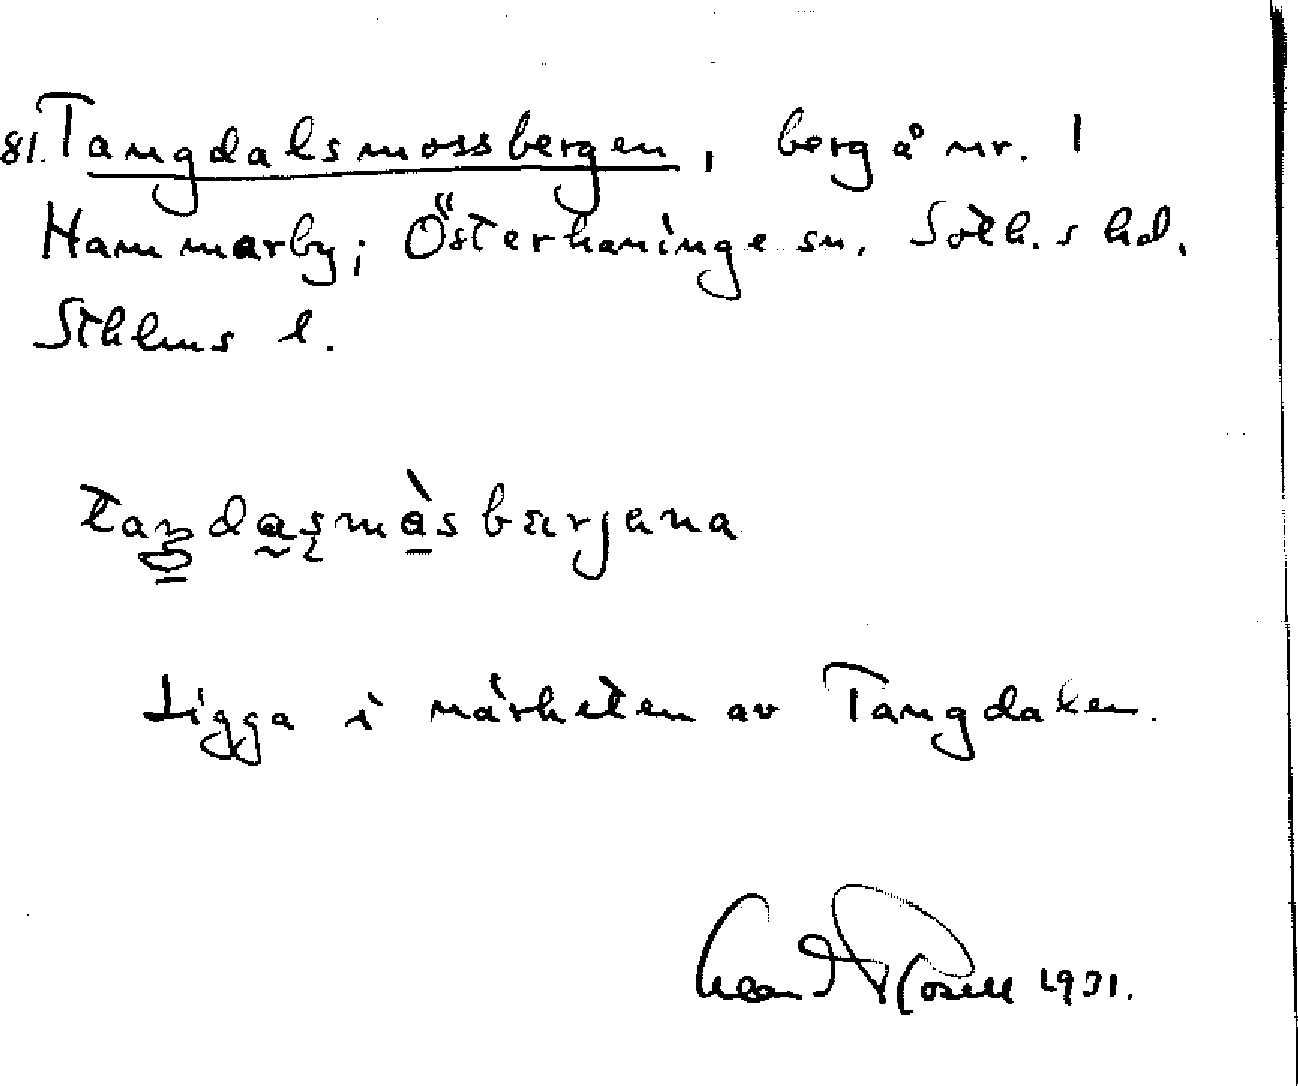 81. Tangdalsmossbergen, berg å nr. 1
Hammarby; Österhaninge sn. Soth. s hd.
Sthlms l.
taŋdasmåsbärjena
Ligga i närheten av Tangdalen.
1931.